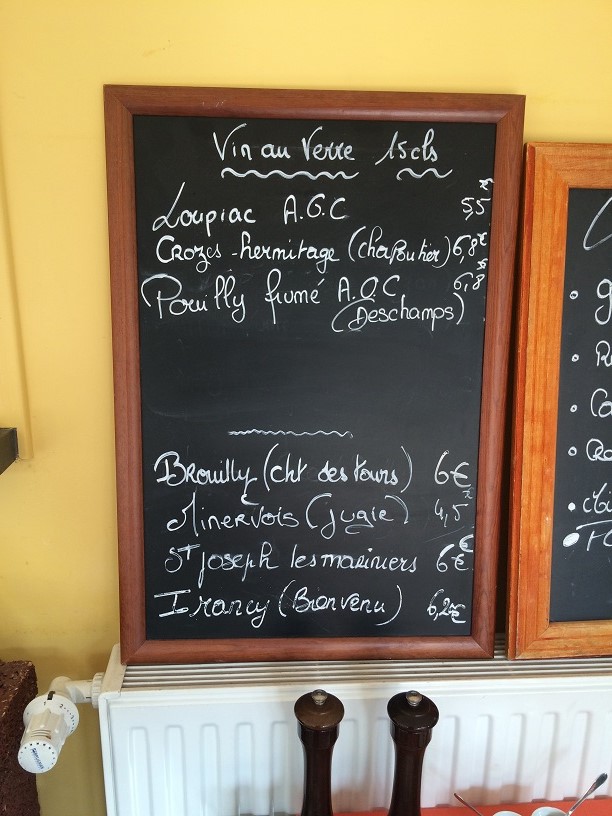 Vin au Verre 15cls
Loupiac A.O.C 5,5€
Crozes-hermitage (chapoutier) 6,8€
Pouilly fumé A.O.C 6,8€
(Deschamps)
Brouilly (cht des tours) 6€
Minervois (jugie) 4,5€
St joseph les mariniers 6€
Irancy (Bienvenu) 6,20€